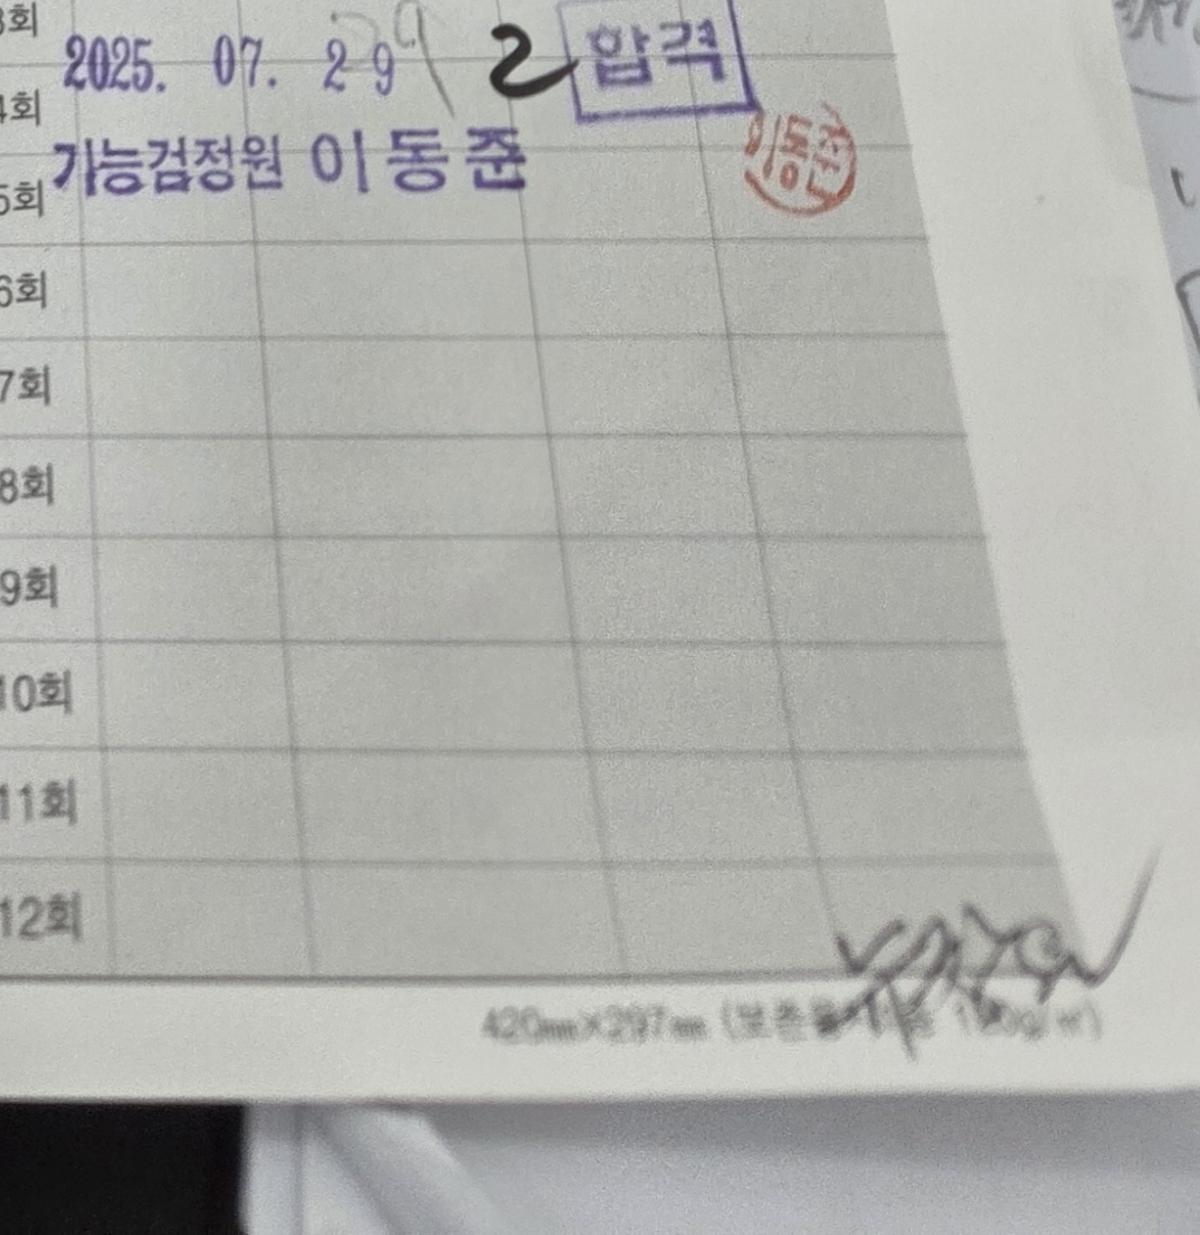 3회
2025. 07. 29 2 합격
4회
기능검정원 이동준
이동준
5회
6회
7회
8회
9회
10회
11회
12회
420㎜×297㎜